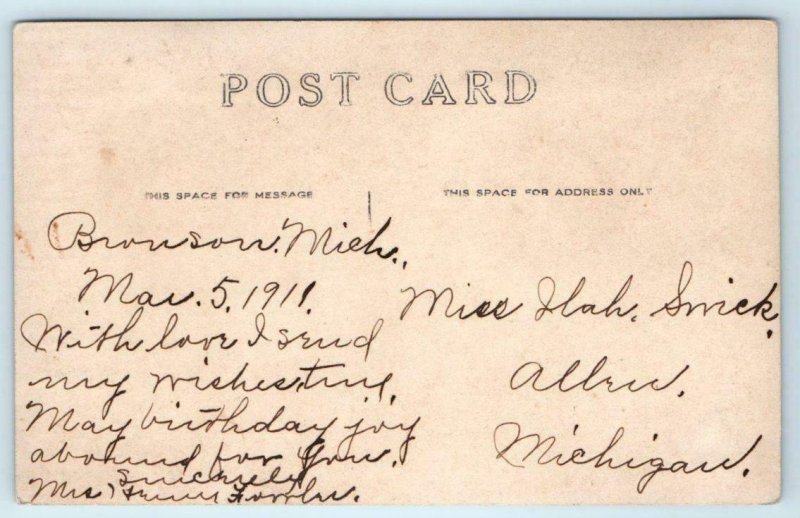 POST CARD
THIS SPACE FOR MESSAGE
THIS SPACE FOR ADDRESS ONLY
Bronson. Mich.,
Mar. 5, 1911.
With love I send
my wishes, true,
May birthday joy
abound for you.
Sincerely
Mrs. Fowler.
Miss Ilah. Swick,
Allen,
Michigan.